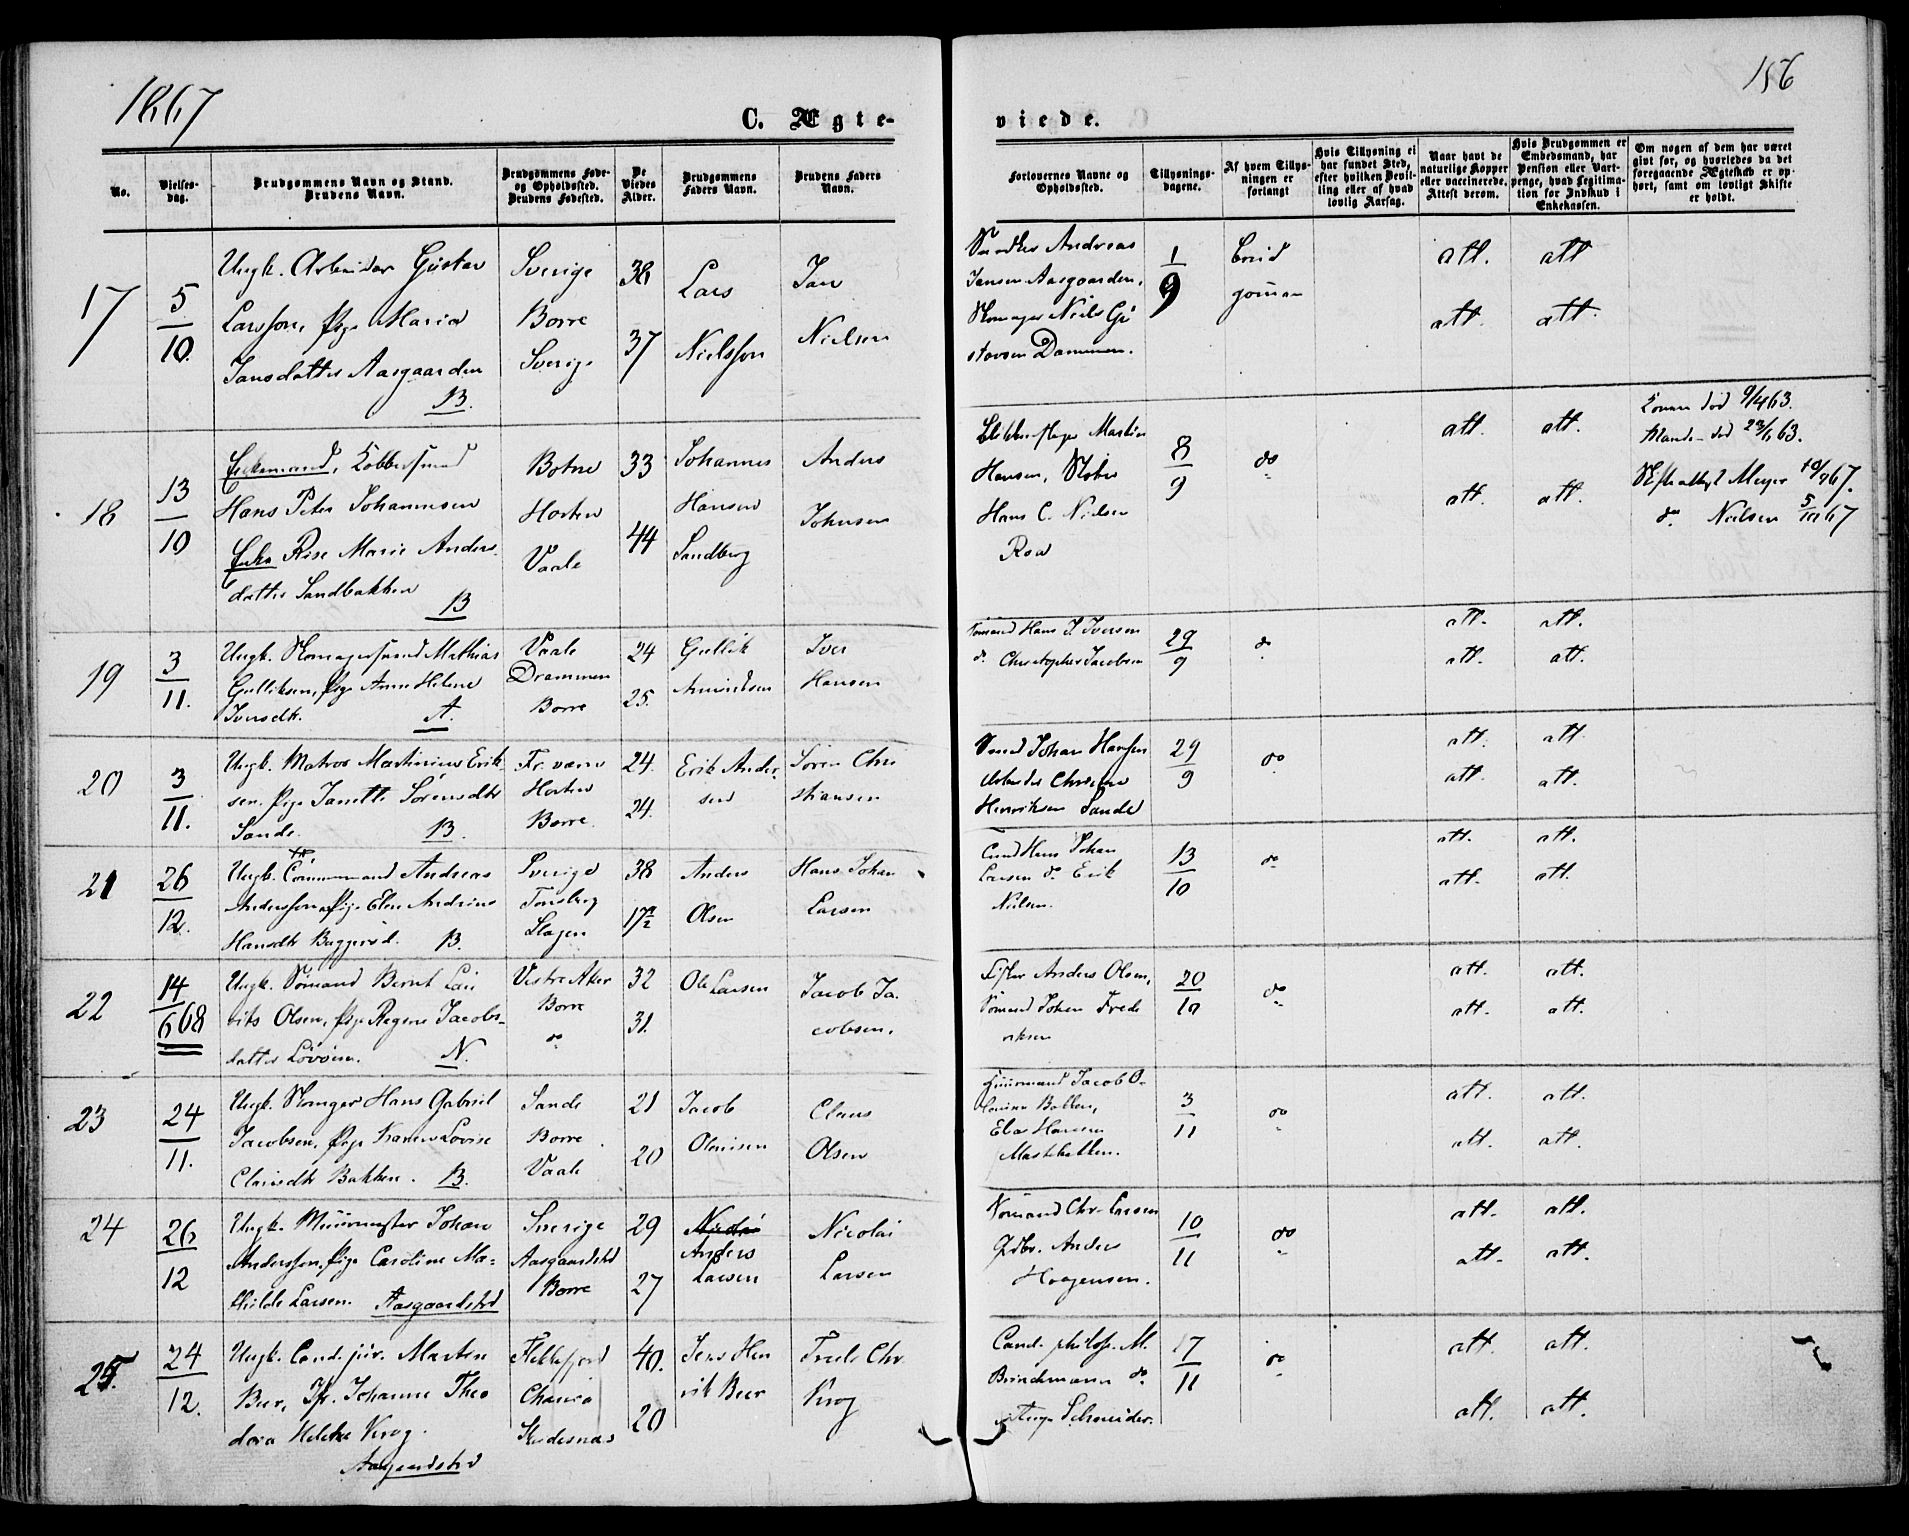 1867
156
C. Ægte-
viede.
No.
Vielses-
dag.
Brudgommens Navn og Stand.
Brudens Navn.
Brudgommens Føde-
og Opholdssted.
Brudens Fødested.
De
Viedes
Alder.
Brudgommens
Faders Navn.
Brudens Faders
Navn.
Forlovernes Navne og
Opholdssted.
Tillysnings-
dagene.
Af hvem Tillys-
ningen er
forlangt
Hvis Tillysning ei
har fundet Sted,
efter hvilken Bevil-
ling eller af hvad
lovlig Aarsag.
Naar havt de
naturlige Kopper
eller vaccinerede.
Attest derom.
Hvis Brudgommen er
Embedsmand, har
Pension eller Vart-
penge, hvad Legitima-
tion for Indskud i
Enkekassen.
Om nogen af dem har været
givt før, og hvorledes da det
foregaaende Ægteskab er op-
hørt, samt om lovligt Skifte
er holdt.
17
5/10
Ungk. Arbeider Gustav
Larsson, Pige Maria
Jansdatter Aasgaarden
B.
Sverige
Borre
Sverige
38
37
Lars
Nielsson
Jan
Nielsen
Andreas
Jansen Aasgaarden,
Skomager Niels Gu
stavsen Dammen.
1/9
Brud
gommen
att.
att.
att
att.
18
13/10
Enkemand, Kobbersmed
Hans Peter Johannesen
Enke Rise Marie Anders-
datter Sandbakken
B
Botne
Horten
Vaale
33
44
Johannes
Hansen
Sandberg
Anders
Johnsen
Blikkenslager Martin
Hansen,
Hans C. Nielsen
8/9
do
att.
att.
att.
att.
Konen død 9/4 63.
Manden død 63.
Meyer 67.
do. Nielsen 5/10 67
19
3/11.
Ungk. Skomagersvend Mathias
Gulliksen, Pige Anne Helene
Iversdtr.
A.
Vaale
Drammen
Borre
24
25.
Gullik
Amundsen
Iver
Hansen
Sømand Hans J. Iversen
do. Christopher Jacobsen
29/9
do
att.
att.
att.
att.
20
3/11.
Ungk. Matros Martinius Erik-
sen. Pige Janette Sørensdtr
Sande.
B.
Fr. værn
Horten
Borre.
24.
24.
Erik Ander-
sen
Søren Chri
stiansen
Johan Hansen
Arbeider Christian
Henriksen Sande
29/9
do
att.
att.
att.
att.
21
26/12.
Ungk. Tømmermand Andreas
Andersson, Pige Elen Andrine
Hansdtr Baggerød. B.
Sverige
Tønsberg
Slagen
38
17½
Anders
Olsen
Hans Johan
Larsen
Hans Johan
Larsen do. Erik
Nielsen.
13/10
do
att.
att.
att.
att.
22
14/6 68
Ungk. Sømand Bernt Lau
rits Olsen, Pige Regine Jacobs-
datter Løvøen.
N.
Vestre Aker
Borre
do
32
31.
Ole Larsen
Jacob Ja-
cobsen.
Fisker Anders Olsen,
Sømand Johan Frede
riksen
20/10
do
att.
att.
att.
att.
23
24/11.
Ungk. Skomager Hans Gabriel
Jacobsen, Pige Karen Lovise
Clausdtr Bakken. B.
Sande
Borre
Vaale
21
20
Jacob
Olausen
Claus
Olsen
Huusmand Jacob O-
lausen Bakken,
Elias Hansen
3/11
do
att.
att.
att.
att.
24
26/12
Ungk. Muurmester Johan
Andersson, Pige Caroline Ma-
thilde Larsen. Aasgaardstrd
Sverige
Aasgaardstrd
Borre
29
27
Nicolai
Anders
Larsen
Nicolai
Larsen
Sømand Chr. Larsen
Gdbr. Anders
Haagensen.
10/11
do
att.
att.
att.
att.
25.
24/12.
Ungk. Cand. jur. Morten
Beer, Jfr. Johanne Theo
dora Helche Krog.
Aasgaardstrd
Flekkefjord
Skudesnæs
40.
20
Jens Hen
rik Beer
Fredr. Chr.
Krog
Cand. philos. M.
Brinchmann do.
Schneider.
17/11
do
att.
att.
att.
att.